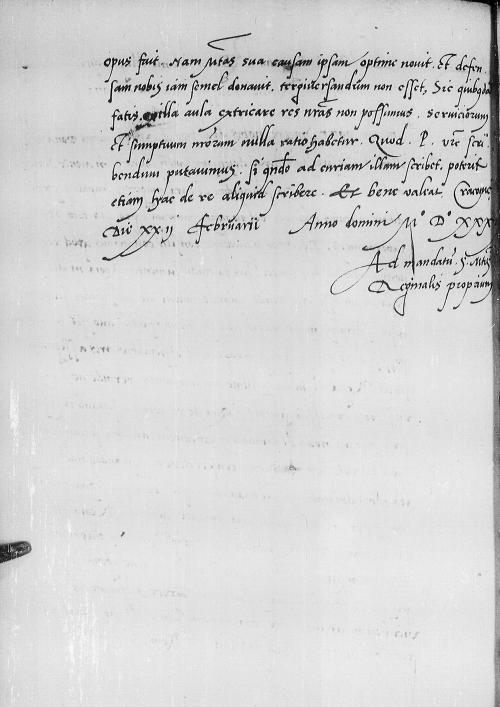 opus fuit. Nam Mtas sua causam ipsam optime novit. Et defen
sam nobis iam semel donavit. tergiversandum non esset, Sic quibusda
fatis, illa aula extricare res nras non possumus. serviciorum
Et sumptuum nrorum nulla ratio habetur. Quod. P. vre scri
bendum putavimus. si qndo ad curiam illam scribet. poterit
etiam hac de re aliquid scribere. Et bene valeat. Cracovie
Die XXII Februarii Anno domini Mo Do XXX
Ad mandatu. S. Mtis
Reginalis proprium